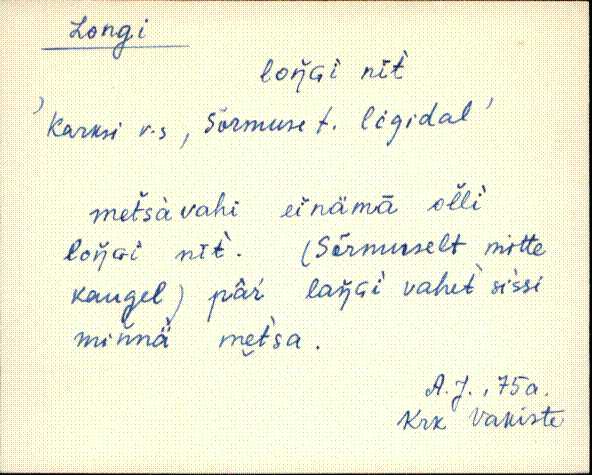 Longi
loŋ̆ɢi nīt̀
'Karksi v-s, Sõrmuse t. ligidal'
met̆sàvahi einämā ol̆lì
loŋ̆ɢi nīt̀. (Sõrmuselt mitte
kaugel) pâŕ laŋ̆ɢì vahet̀ sis̀si
miňnä met̀sa.
A.J., 75a.
Krk Vakiste